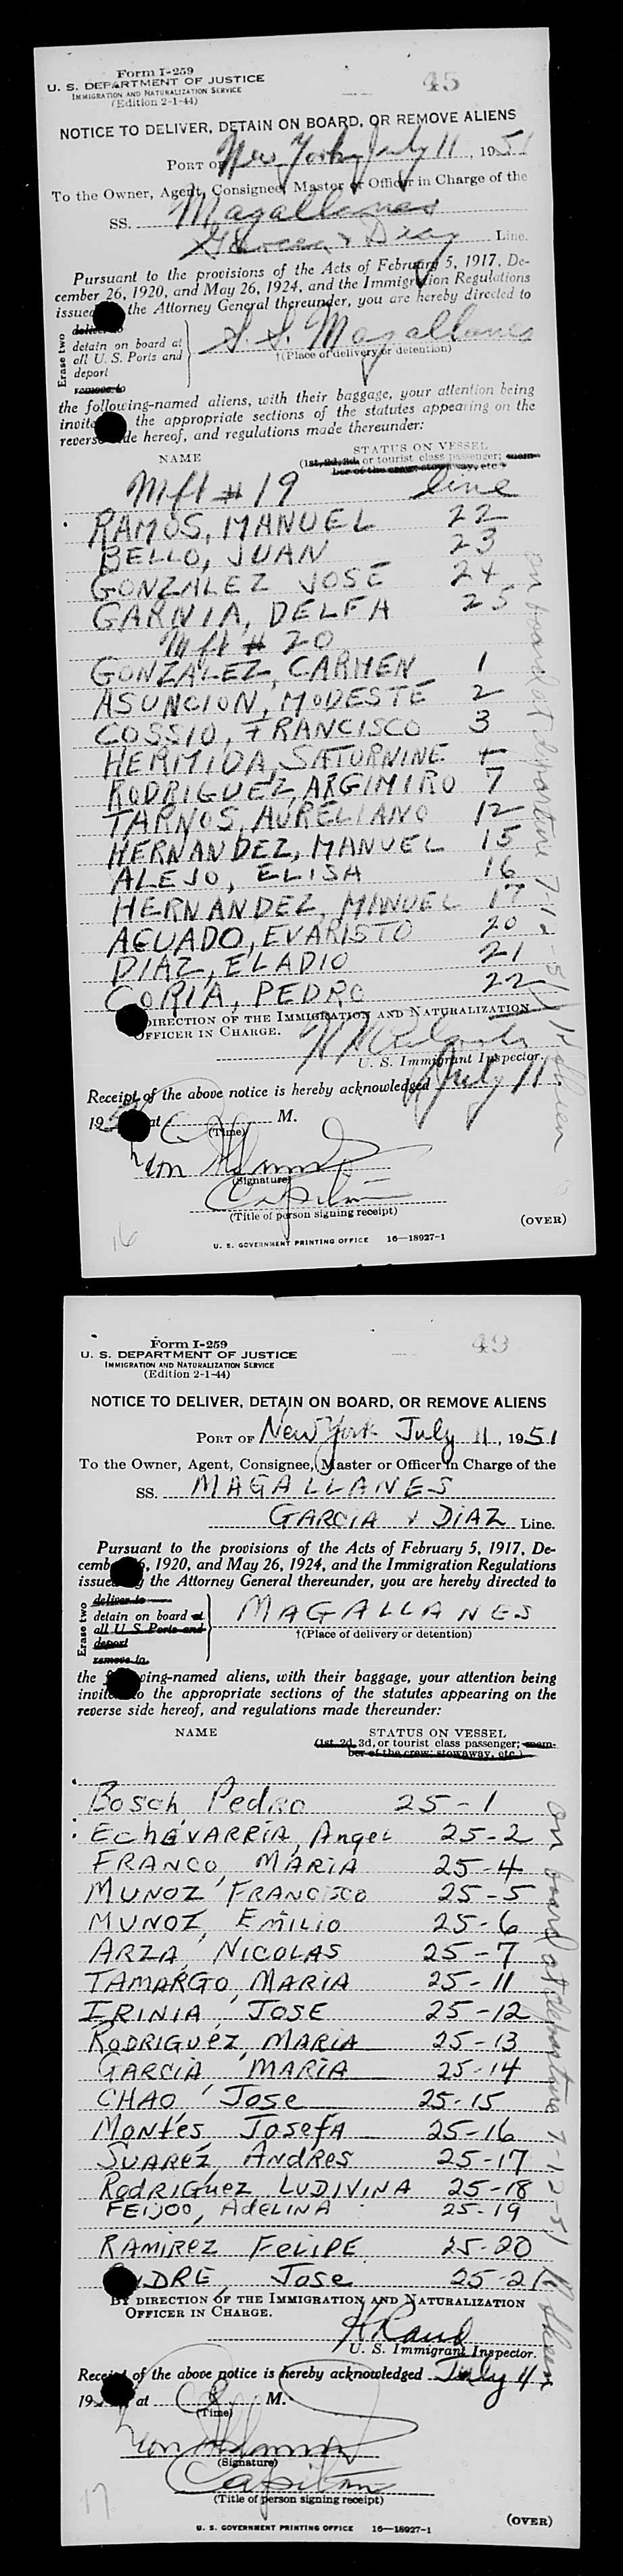 Form I-259
45
U. S. DEPARTMENT OF JUSTICE
IMMIGRATION AND NATURALIZATION SERVICE
(Edition 2-1-44)
NOTICE TO DELIVER, DETAIN ON BOARD, OR REMOVE ALIENS
PORT OF New York July 11, 1951
To the Owner, Agent, Consignee, Master or Officer in Charge of the
SS. Magallanes
Garcia & Diaz Line.
Pursuant to the provisions of the Acts of February 5, 1917, De-
cember 26, 1920, and May 26, 1924, and the Immigration Regulations
issued the Attorney General thereunder, you are hereby directed to
Erase two
deliver to
detain on board at
all U. S. Ports and
deport
remove to
S. S. Magallanes
†(Place of delivery or detention)
the following-named aliens, with their baggage, your attention being
invite the appropriate sections of the statutes appearing on the
reverse side hereof, and regulations made thereunder:
NAME STATUS ON VESSEL
(1st, 2d, 3d, or tourist class passenger; mem-
ber of the crew; stowaway, etc.)
Mft # 19 line
RAMOS, MANUEL 22
BELLO, JUAN 23
GONZALEZ JOSE 24
GARNIA, DELFA 25
Mft # 20
GONZALEZ, CARMEN 1
ASUNCION, MODESTE 2
COSSIO, FRANCISCO 3
HERMIDA, SATURNINE 4
RODRIGUEZ, ARGIMIRO 7
TARNOS, AURELIANO 12
HERNANDEZ, MANUEL 15
ALEJO, ELISA 16
HERNANDEZ, MANUEL 17
AGUADO, EVARISTO 20
DIAZ, ELADIO 21
CORIA, PEDRO 22
on board at departure 7-12-51
DIRECTION OF THE IMMIGRATION AND NATURALIZATION
OFFICER IN CHARGE.
U. S. Immigrant Inspector.
Receipt of the above notice is hereby acknowledged July 11
19 at M.
(Time)
(Signature)
Capitan
(Title of person signing receipt)
(OVER)
16
U. S. GOVERNMENT PRINTING OFFICE 16—18927-1
Form I-259
49
U. S. DEPARTMENT OF JUSTICE
IMMIGRATION AND NATURALIZATION SERVICE
(Edition 2-1-44)
NOTICE TO DELIVER, DETAIN ON BOARD, OR REMOVE ALIENS
PORT OF New York July 11, 1951
To the Owner, Agent, Consignee, Master or Officer in Charge of the
SS. MAGALLANES
GARCIA & DIAZ Line.
Pursuant to the provisions of the Acts of February 5, 1917, De-
cemb 6, 1920, and May 26, 1924, and the Immigration Regulations
issued the Attorney General thereunder, you are hereby directed to
Erase two
deliver to
detain on board at
all U. S. Ports and
deport
remove to
MAGALLANES
†(Place of delivery or detention)
the wing-named aliens, with their baggage, your attention being
invite to the appropriate sections of the statutes appearing on the
reverse side hereof, and regulations made thereunder:
NAME STATUS ON VESSEL
(1st, 2d, 3d, or tourist class passenger; mem-
ber of the crew; stowaway, etc.)
Bosch Pedro 25-1
EchEVARRIA, Angel 25-2
FRANCO, MARIA 25-4
MUNOZ, FRANCISCO 25-5
MUNOZ, EMILIO 25-6
ARZA, NICOLAS 25-7
TAMARGO, MARIA 25-11
IRINIA, JOSE 25-12
RODRIGUEZ, MARIA 25-13
GARCIA, MARIA 25-14
CHAO, Jose 25-15
Montes Josefa 25-16
SUAREZ, ANDRES 25-17
RodRIGuez LUDIVINA 25-18
FEIJOO, ADELINA 25-19
RAMIREZ FELIPE 25-20
NDRE, Jose 25-21
on board at departure 7-12-51
BY DIRECTION OF THE IMMIGRATION AND NATURALIZATION
OFFICER IN CHARGE.
U. S. Immigrant Inspector.
Receipt of the above notice is hereby acknowledged July 11
19 at 8 M.
(Time)
(Signature)
Capitan
(Title of person signing receipt)
(OVER)
17
U. S. GOVERNMENT PRINTING OFFICE 16—18927-1